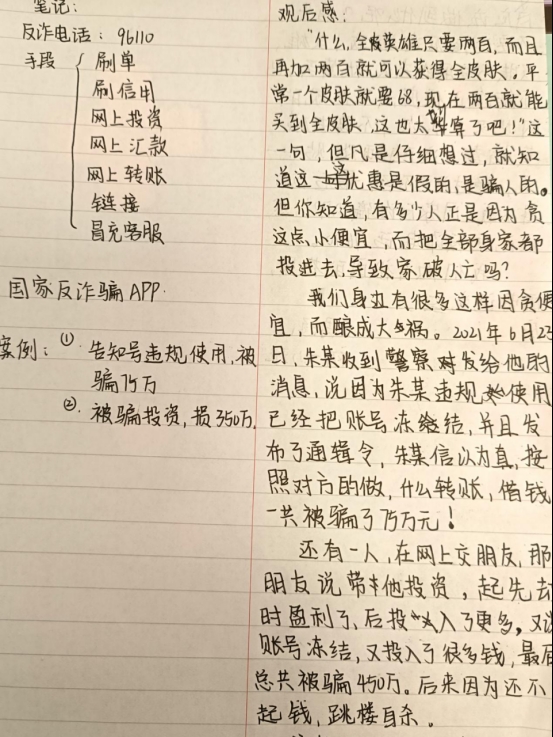 笔记:
反诈电话:96110
手段 { 刷单
刷信用
网上投资
网上汇款
网上转账
链接
冒充客服
国家反诈骗APP.
案例:① 告知号违规使用,被
骗75万
②. 被骗投资,损350万.
观后感:
"什么,全皮英雄只要两百,而且
再加两百就可以获得全皮肤。平
常一个皮肤就要68,现在两百就能
买到全皮肤,这也太划算了吧!"这
一句,但凡是仔细想过,就知
道这优惠是假的,是骗人的。
但你知道,有多少人正是因为贪
这点小便宜,而把全部身家都
投进去,导致家破人亡吗?
我们身边有很多这样因贪便
宜,而酿成大祸。2021年6月23
日,朱某收到警察对发给他的
消息,说因为朱某违规使用
已经把账号冻结,并且发
布了通缉令,朱某信以为真,按
照对方的做,什么转账,借钱
一共被骗了75万元!
还有一人,在网上交朋友,那
朋友说带他投资,起先去
时盈利了,后投入了更多,又说
账号冻结,又投入了很多钱,最后
总共被骗450万。后来因为还不
起钱,跳楼自杀。